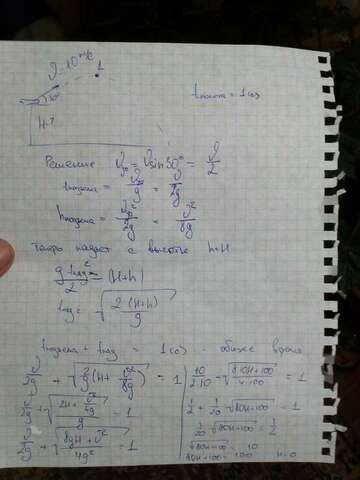 V=10 м/с
1
30°
H-?
tполета = 1(с)
Решение Vy₀ = Vsin30° = V/2
tподъема = Vy₀/g = V/2g
hподъема = Vy₀²/2g = V²/8g
Теперь падает с высоты h+H
g tпад²/2 = (H+h)
tпад = √(2(H+h)/g)
tподъема + tпад = 1(с) - общее время
V/2g + √(2/g(H + V²/8g)) = 1
V/2g + √((2H + V²/4g)/g) = 1
V/2g + √((8gH + V²)/4g²) = 1
10/2·10 + √((80H+100)/4·100) = 1
1/2 + 1/20 √(80H+100) = 1
1/20 √(80H+100) = 1/2
√(80H+100) = 10
80H+100 = 100 H=0